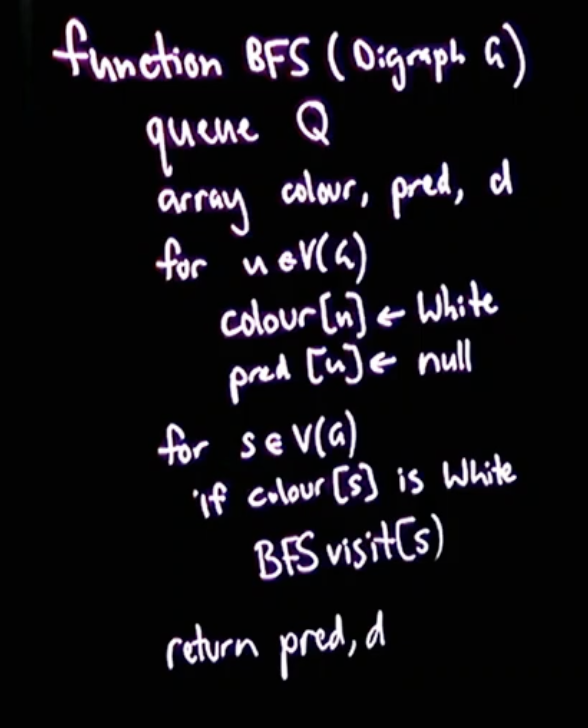 function BFS (Digraph G)
queue Q
array colour, pred, d
for u ∈ V(G)
colour[u] ← White
pred [u] ← null
for s ∈ V(G)
if colour[s] is White
BFSvisit(s)
return pred, d